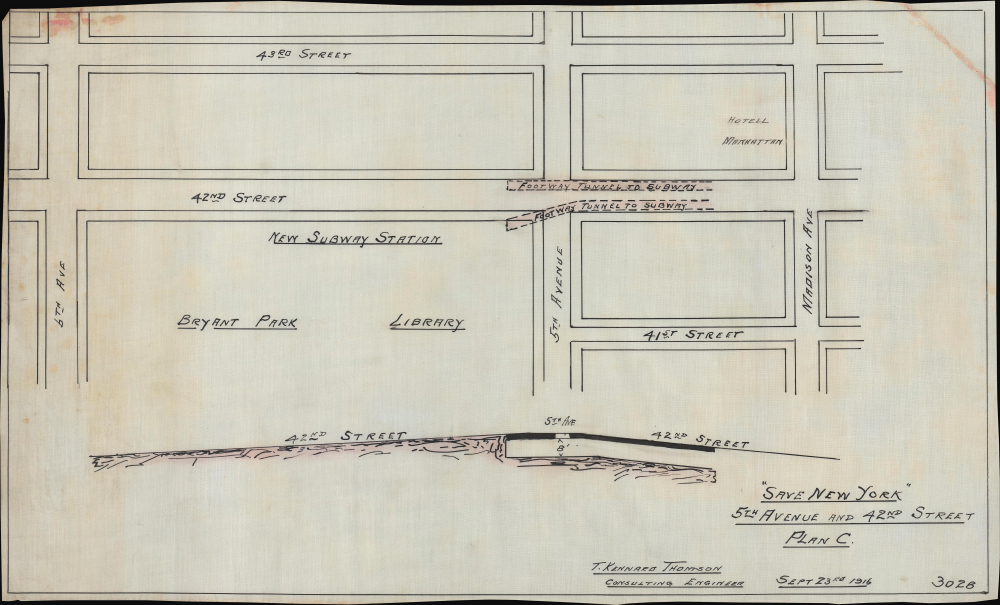 43RD STREET
HOTELL
MANHATTAN
FOOTWAY TUNNEL TO SUBWAY
42ND STREET
FOOTWAY TUNNEL TO SUBWAY
NEW SUBWAY STATION
6TH AVE
5TH AVENUE
MADISON AVE
BRYANT PARK
LIBRARY
41ST STREET
5TH AVE
42ND STREET
42ND STREET
8'
"SAVE NEW YORK"
5TH AVENUE AND 42ND STREET
PLAN C.
T. KENNARD THOMSON
CONSULTING ENGINEER
SEPT 23RD 1916
302B